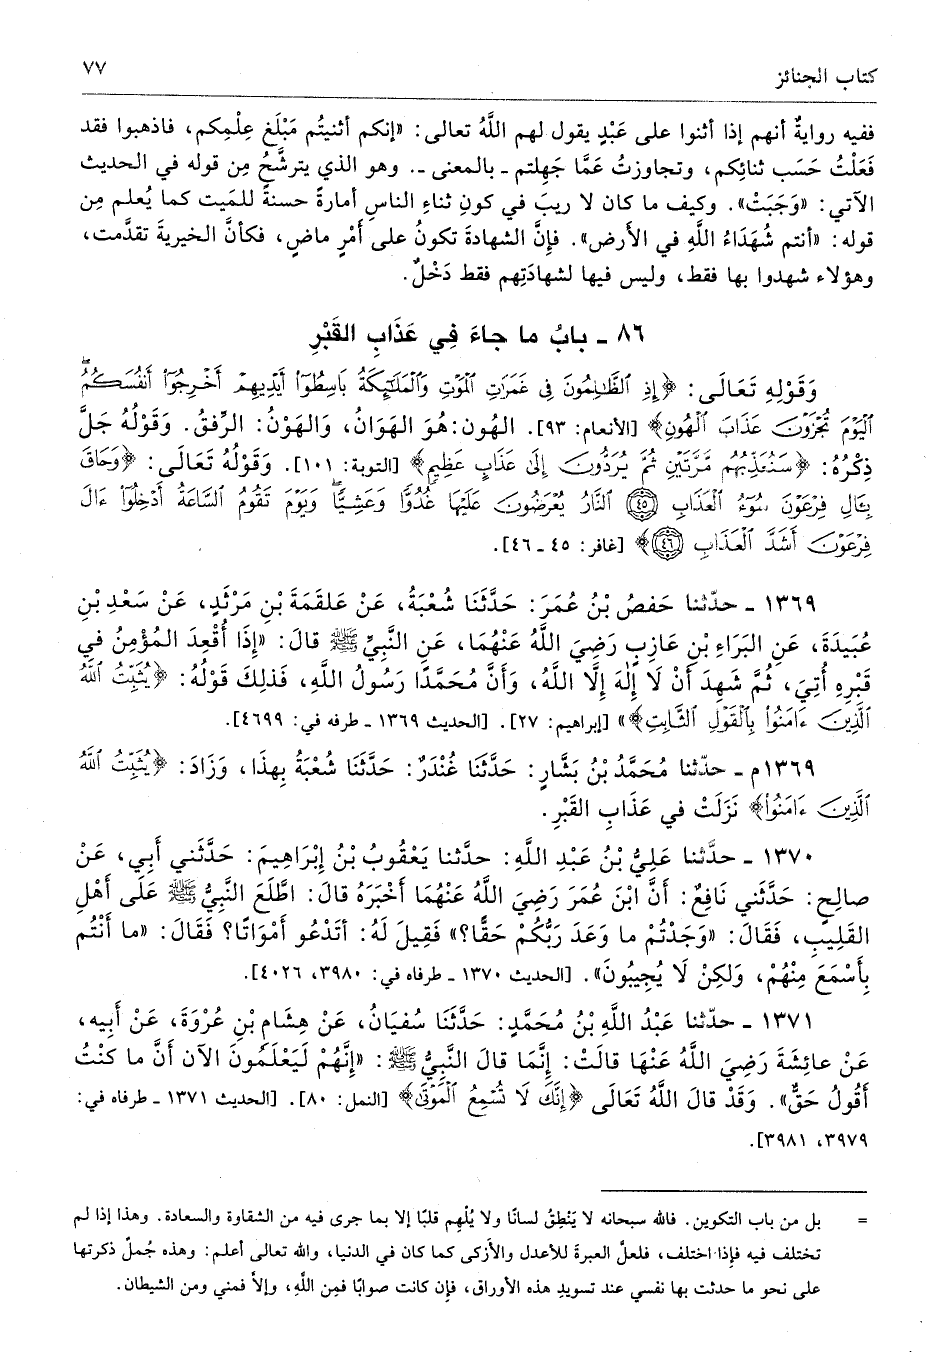 كتاب الجنائز ٧٧
ففيه روايةٌ أنهم إذا أثنوا على عَبْدٍ يقول لهم اللَّهُ تعالى: «إنكم أثنيتُم مَبْلَغ عِلْمِكم، فاذهبوا فقد
فَعَلْتُ حَسَب ثنائِكم، وتجاوزتُ عَمَّا جَهِلتم ـ بالمعنى ـ. وهو الذي يترشَّحُ مِن قوله في الحديث
الآتي: «وَجَبَتْ». وكيف ما كان لا ريبَ في كونِ ثناءِ الناسِ أمارةً حسنةً للمَيت كما يُعلم مِن
قوله: «أنتم شُهَدَاءُ اللَّهِ في الأرض». فإِنَّ الشهادةَ تكونُ على أَمْرٍ ماضٍ، فكأنَّ الخيريةَ تقدمَت،
وهؤلاء شهدوا بها فقط، وليس فيها لشهادَتِهم فقط دَخْلٌ.
٨٦ ـ بابُ ما جاءَ فِي عَذَابِ القَبْرِ
وَقَوْلِهِ تَعَالَى: ﴿إِذِ ٱلظَّٰلِمُونَ فِى غَمَرَٰتِ ٱلْمَوْتِ وَٱلْمَلَٰٓئِكَةُ بَاسِطُوٓا۟ أَيْدِيهِمْ أَخْرِجُوٓا۟ أَنفُسَكُمُ ۖ
ٱلْيَوْمَ تُجْزَوْنَ عَذَابَ ٱلْهُونِ﴾ [الأنعام: ٩٣]. الهُون: هُوَ الهَوَانُ، وَالهَوْنُ: الرِّفقُ. وَقَوْلُهُ جَلَّ
ذِكْرُهُ: ﴿سَنُعَذِّبُهُم مَّرَّتَيْنِ ثُمَّ يُرَدُّونَ إِلَىٰ عَذَابٍ عَظِيمٍ﴾ [التوبة: ١٠١]. وَقَوْلُهُ تَعَالَى: ﴿وَحَاقَ
بِـَٔالِ فِرْعَوْنَ سُوٓءُ ٱلْعَذَابِ ﴿٤٥﴾ ٱلنَّارُ يُعْرَضُونَ عَلَيْهَا غُدُوًّا وَعَشِيًّا ۖ وَيَوْمَ تَقُومُ ٱلسَّاعَةُ أَدْخِلُوٓا۟ ءَالَ
فِرْعَوْنَ أَشَدَّ ٱلْعَذَابِ ﴿٤٦﴾﴾ [غافر: ٤٥ ـ ٤٦].
١٣٦٩ ـ حدّثنا حَفصُ بْنُ عُمَرَ: حَدَّثَنَا شُعْبَةُ، عَنْ عَلقَمَةَ بْنِ مَرْثَدٍ، عَنْ سَعْدِ بْنِ
عُبَيدَةَ، عَنِ البَرَاءِ بْنِ عازِبٍ رَضِيَ اللَّهُ عَنْهُمَا، عَنِ النَّبِيِّ ﷺ قالَ: «إِذَا أُقْعِدَ المُؤْمِنُ في
قَبْرِهِ أُتِيَ، ثُمَّ شَهِدَ أَنْ لَا إِلٰهَ إِلَّا اللَّهُ، وَأَنَّ مُحَمَّدًا رَسُولُ اللَّهِ، فَذلِكَ قَوْلُهُ: ﴿يُثَبِّتُ ٱللَّهُ
ٱلَّذِينَ ءَامَنُوا۟ بِٱلْقَوْلِ ٱلثَّابِتِ﴾» [إبراهيم: ٢٧]. [الحديث ١٣٦٩ ـ طرفه في: ٤٦٩٩].
١٣٦٩م ـ حدّثنا مُحَمَّدُ بْنُ بَشَّارٍ: حَدَّثَنَا غُنْدَرٌ: حَدَّثَنَا شُعْبَةُ بِهذَا، وَزَادَ: ﴿يُثَبِّتُ ٱللَّهُ
ٱلَّذِينَ ءَامَنُوا۟﴾ نَزَلَتْ في عَذَابِ القَبْرِ.
١٣٧٠ ـ حدَّثنا عَلِيُّ بْنُ عَبْدِ اللَّهِ: حدّثنا يَعْقُوبُ بْنُ إِبْرَاهِيمَ: حَدَّثَني أَبِي، عَنْ
صالِحٍ: حَدَّثَني نَافِعٌ: أَنَّ ابْنَ عُمَرَ رَضِيَ اللَّهُ عَنْهُمَا أَخْبَرَهُ قالَ: اطَّلَعَ النَّبِيُّ ﷺ عَلَى أَهْلِ
القَلِيبِ، فَقَالَ: «وَجَدْتُمْ ما وَعَدَ رَبُّكُمْ حَقًّا؟» فَقِيلَ لَهُ: أَتَدْعُو أَمْوَاتًا؟ فَقَالَ: «ما أَنْتُم
بِأَسْمَعَ مِنْهُمْ، وَلكِنْ لَا يُجِيبُونَ». [الحديث ١٣٧٠ ـ طرفاه في: ٣٩٨٠، ٤٠٢٦].
١٣٧١ ـ حدّثنا عَبْدُ اللَّهِ بْنُ مُحَمَّدٍ: حَدَّثَنَا سُفيَانُ، عَنْ هِشَامِ بْنِ عُرْوَةَ، عَنْ أَبِيه،
عَنْ عائِشَةَ رَضِيَ اللَّهُ عَنْهَا قالَتْ: إِنَّمَا قالَ النَّبِيُّ ﷺ: «إِنَّهُمْ لَيَعْلَمُونَ الآن أَنَّ ما كنْتُ
أَقُولُ حَقٌّ». وَقَدْ قالَ اللَّهُ تَعَالَى ﴿إِنَّكَ لَا تُسْمِعُ ٱلْمَوْتَىٰ﴾ [النمل: ٨٠]. [الحديث ١٣٧١ ـ طرفاه في:
٣٩٧٩، ٣٩٨١].
= بل من باب التكوين. فالله سبحانه لا يَنْطِقُ لسانًا ولا يُلْهِم قلبًا إلا بما جرى فيه من الشقاوة والسعادة. وهذا إذا لم
تختلف فيه فإذا اختلف، فلعلَّ العبرةَ للأعدل والأزكى كما كان في الدنيا، والله تعالى أعلم: وهذه جُملٌ ذكرتها
على نحو ما حدثت بها نفسي عند تسويدِ هذه الأوراق، فإِن كانت صوابًا فمِن اللَّهِ، وإلاَّ فمني ومن الشيطان.